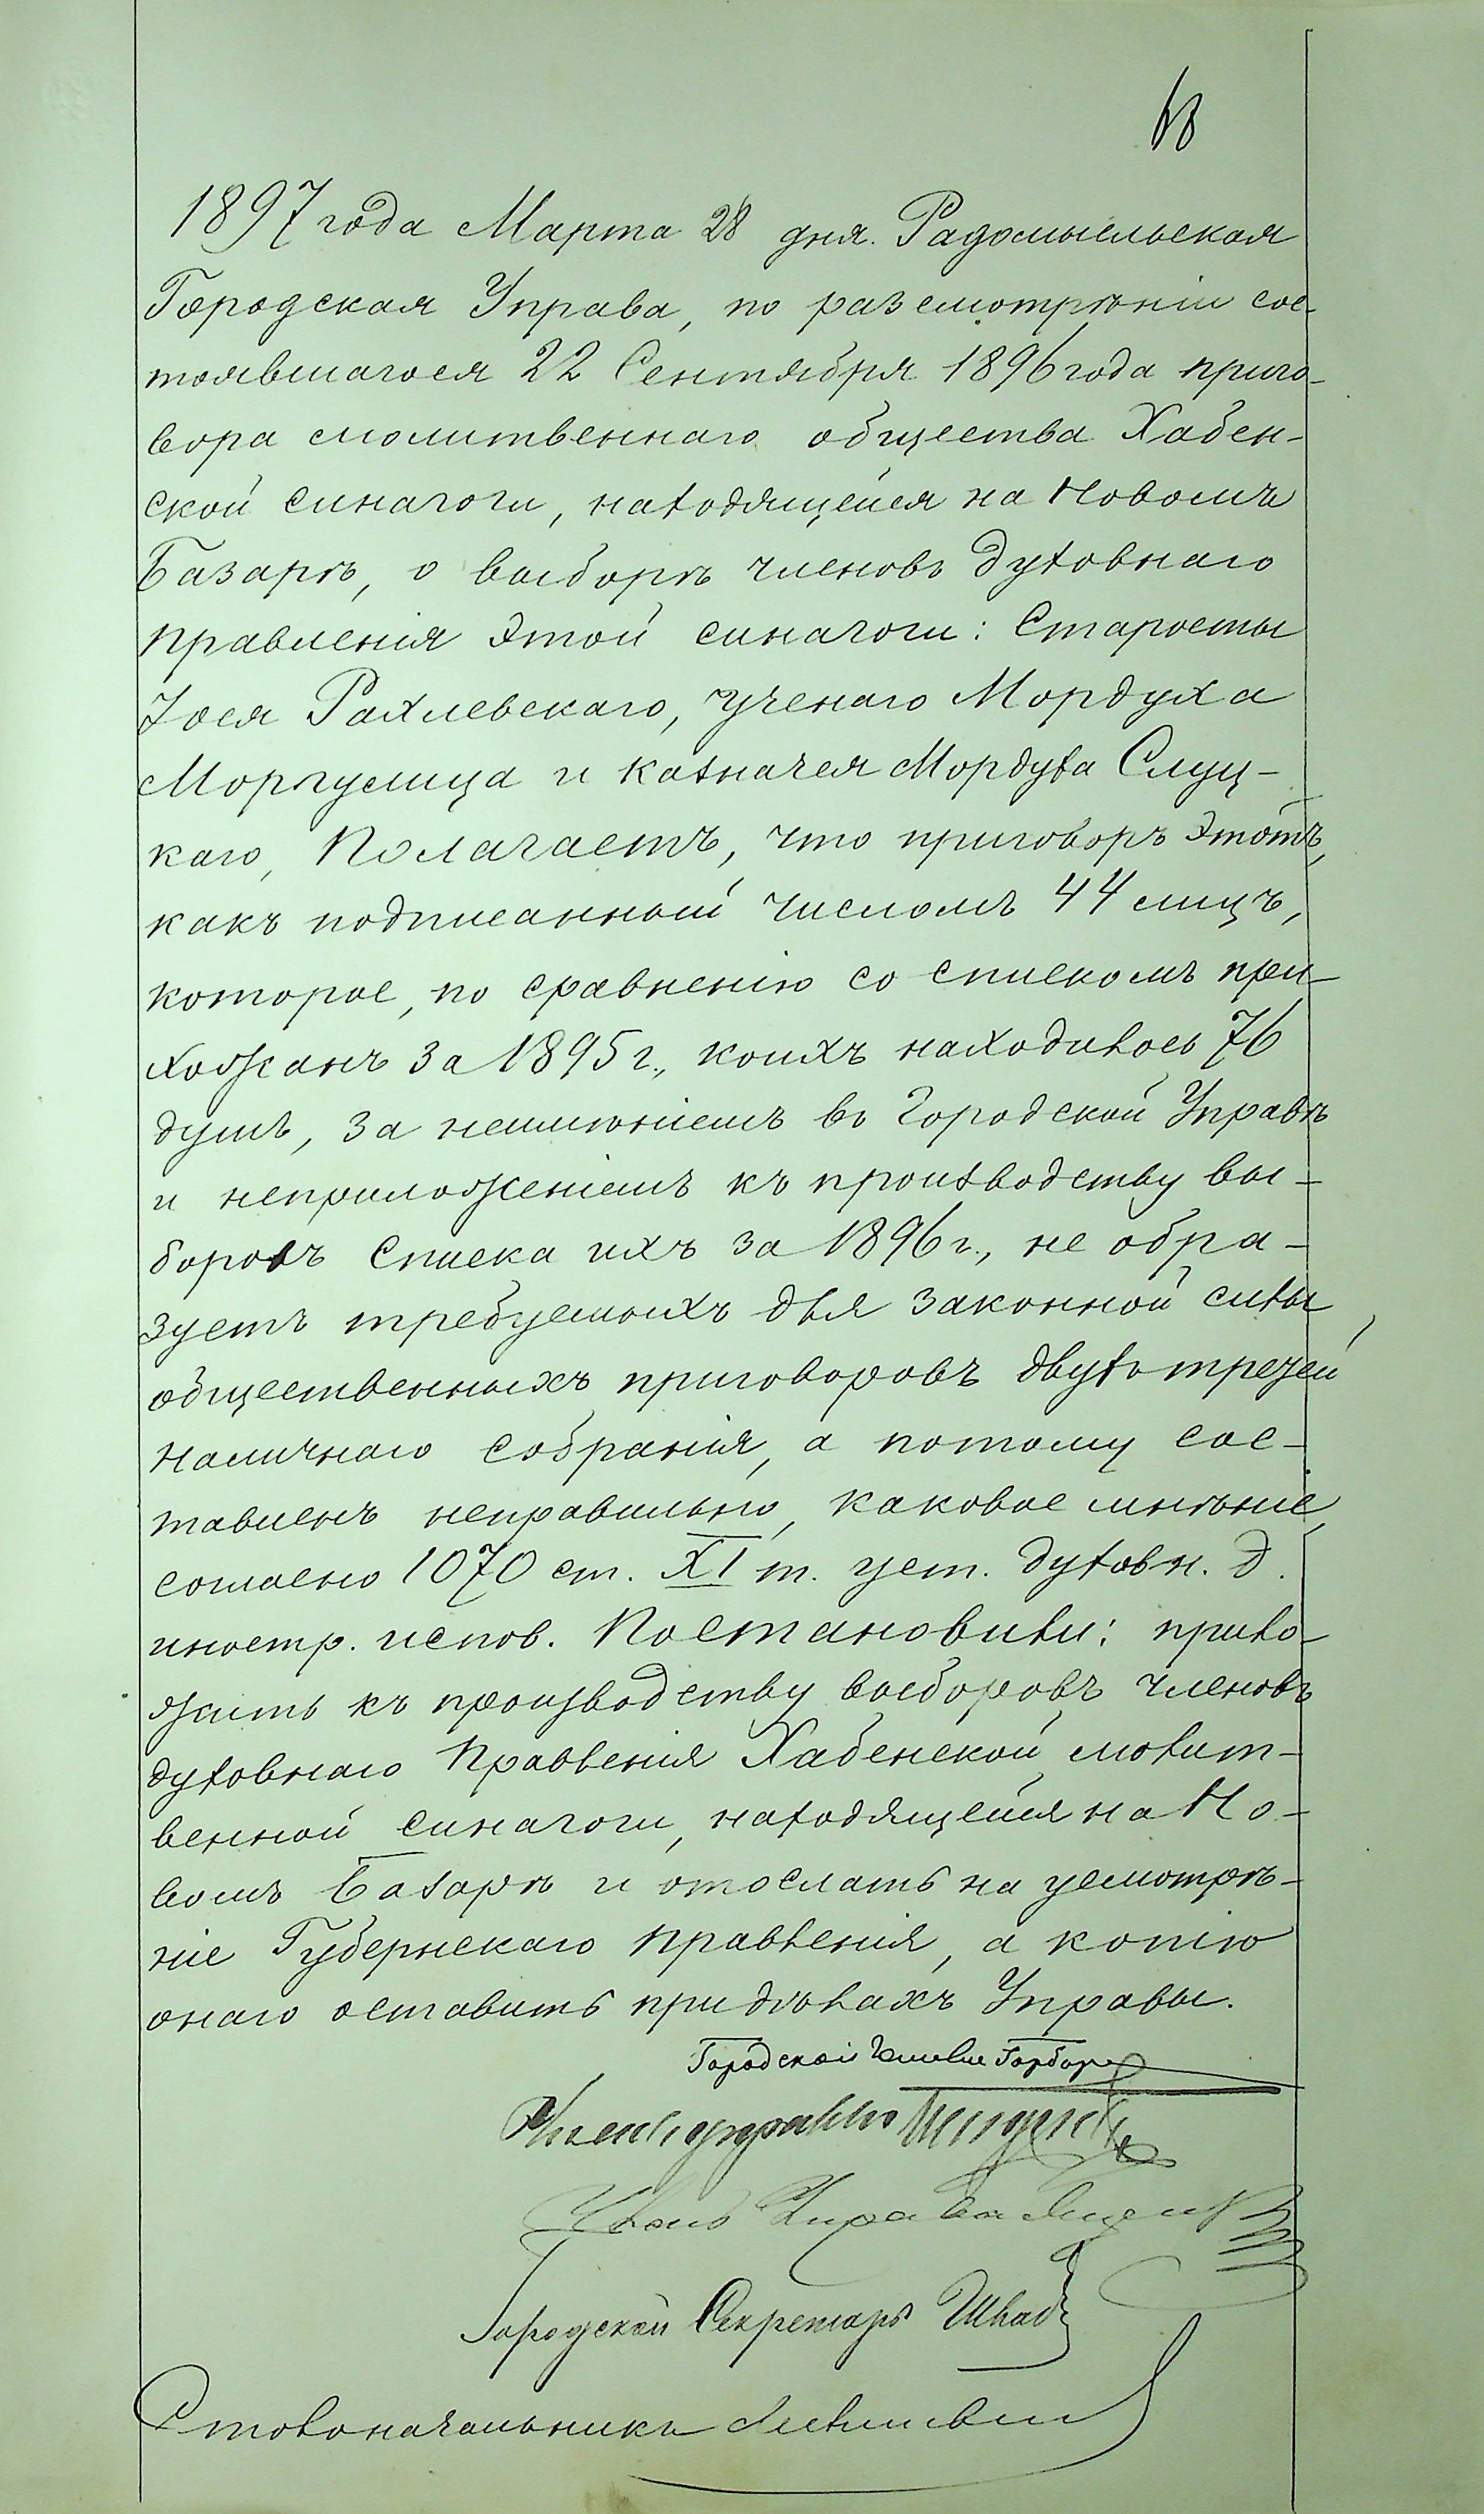 1897 года Марта 28 дня. Радомысльская
Городская Управа, по разсмотрѣніи сос-
тоявшагося 22 Сентября 1896 года приго-
вора молитвеннаго общества Хабен-
ской синагоги, находящейся на Новомъ
Базарѣ, о выборѣ членовъ Духовнаго
правленія этой синагоги: Старосты
Іося Рахлевскаго, ученаго Мордуха
Моргулица и казначея Мордуха Слуц-
каго, Полагаетъ, что приговоръ этотъ,
какъ подписанный числомъ 44 лицъ,
которое, по сравненію со спискомъ при-
хожанъ за 1895 г., коихъ находилось 76
душъ, за неимѣніемъ въ Городской Управѣ
и неприложеніемъ къ производству вы-
боровъ Списка ихъ за 1896 г., не обра-
зуетъ требуемыхъ для законной силы
общественныхъ приговоровъ двухъ третей
наличнаго собранія, а потому сос-
тавленъ неправильно, каковое мнѣніе,
согласно 1070 ст. XI т. уст. духовн. д.
иностр. испов. Постановили: прило-
жить къ производству выборовъ членовъ
духовнаго Правленія Хабенской молит-
венной синагоги, находящейся на Но-
вомъ Базарѣ и отослать на усмотрѣ-
ніе Губернскаго Правленія, а копію
онаго оставить при дѣлахъ Управы.
Городской
Членъ управы
Членъ Управы
Городской Секретарь
Столоначальникъ